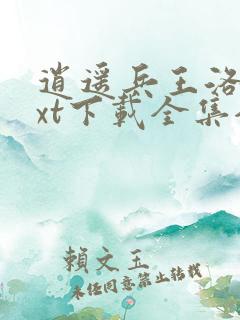 逍遥兵王洛
xt下載全集
賴文玉
未经同意禁止转载